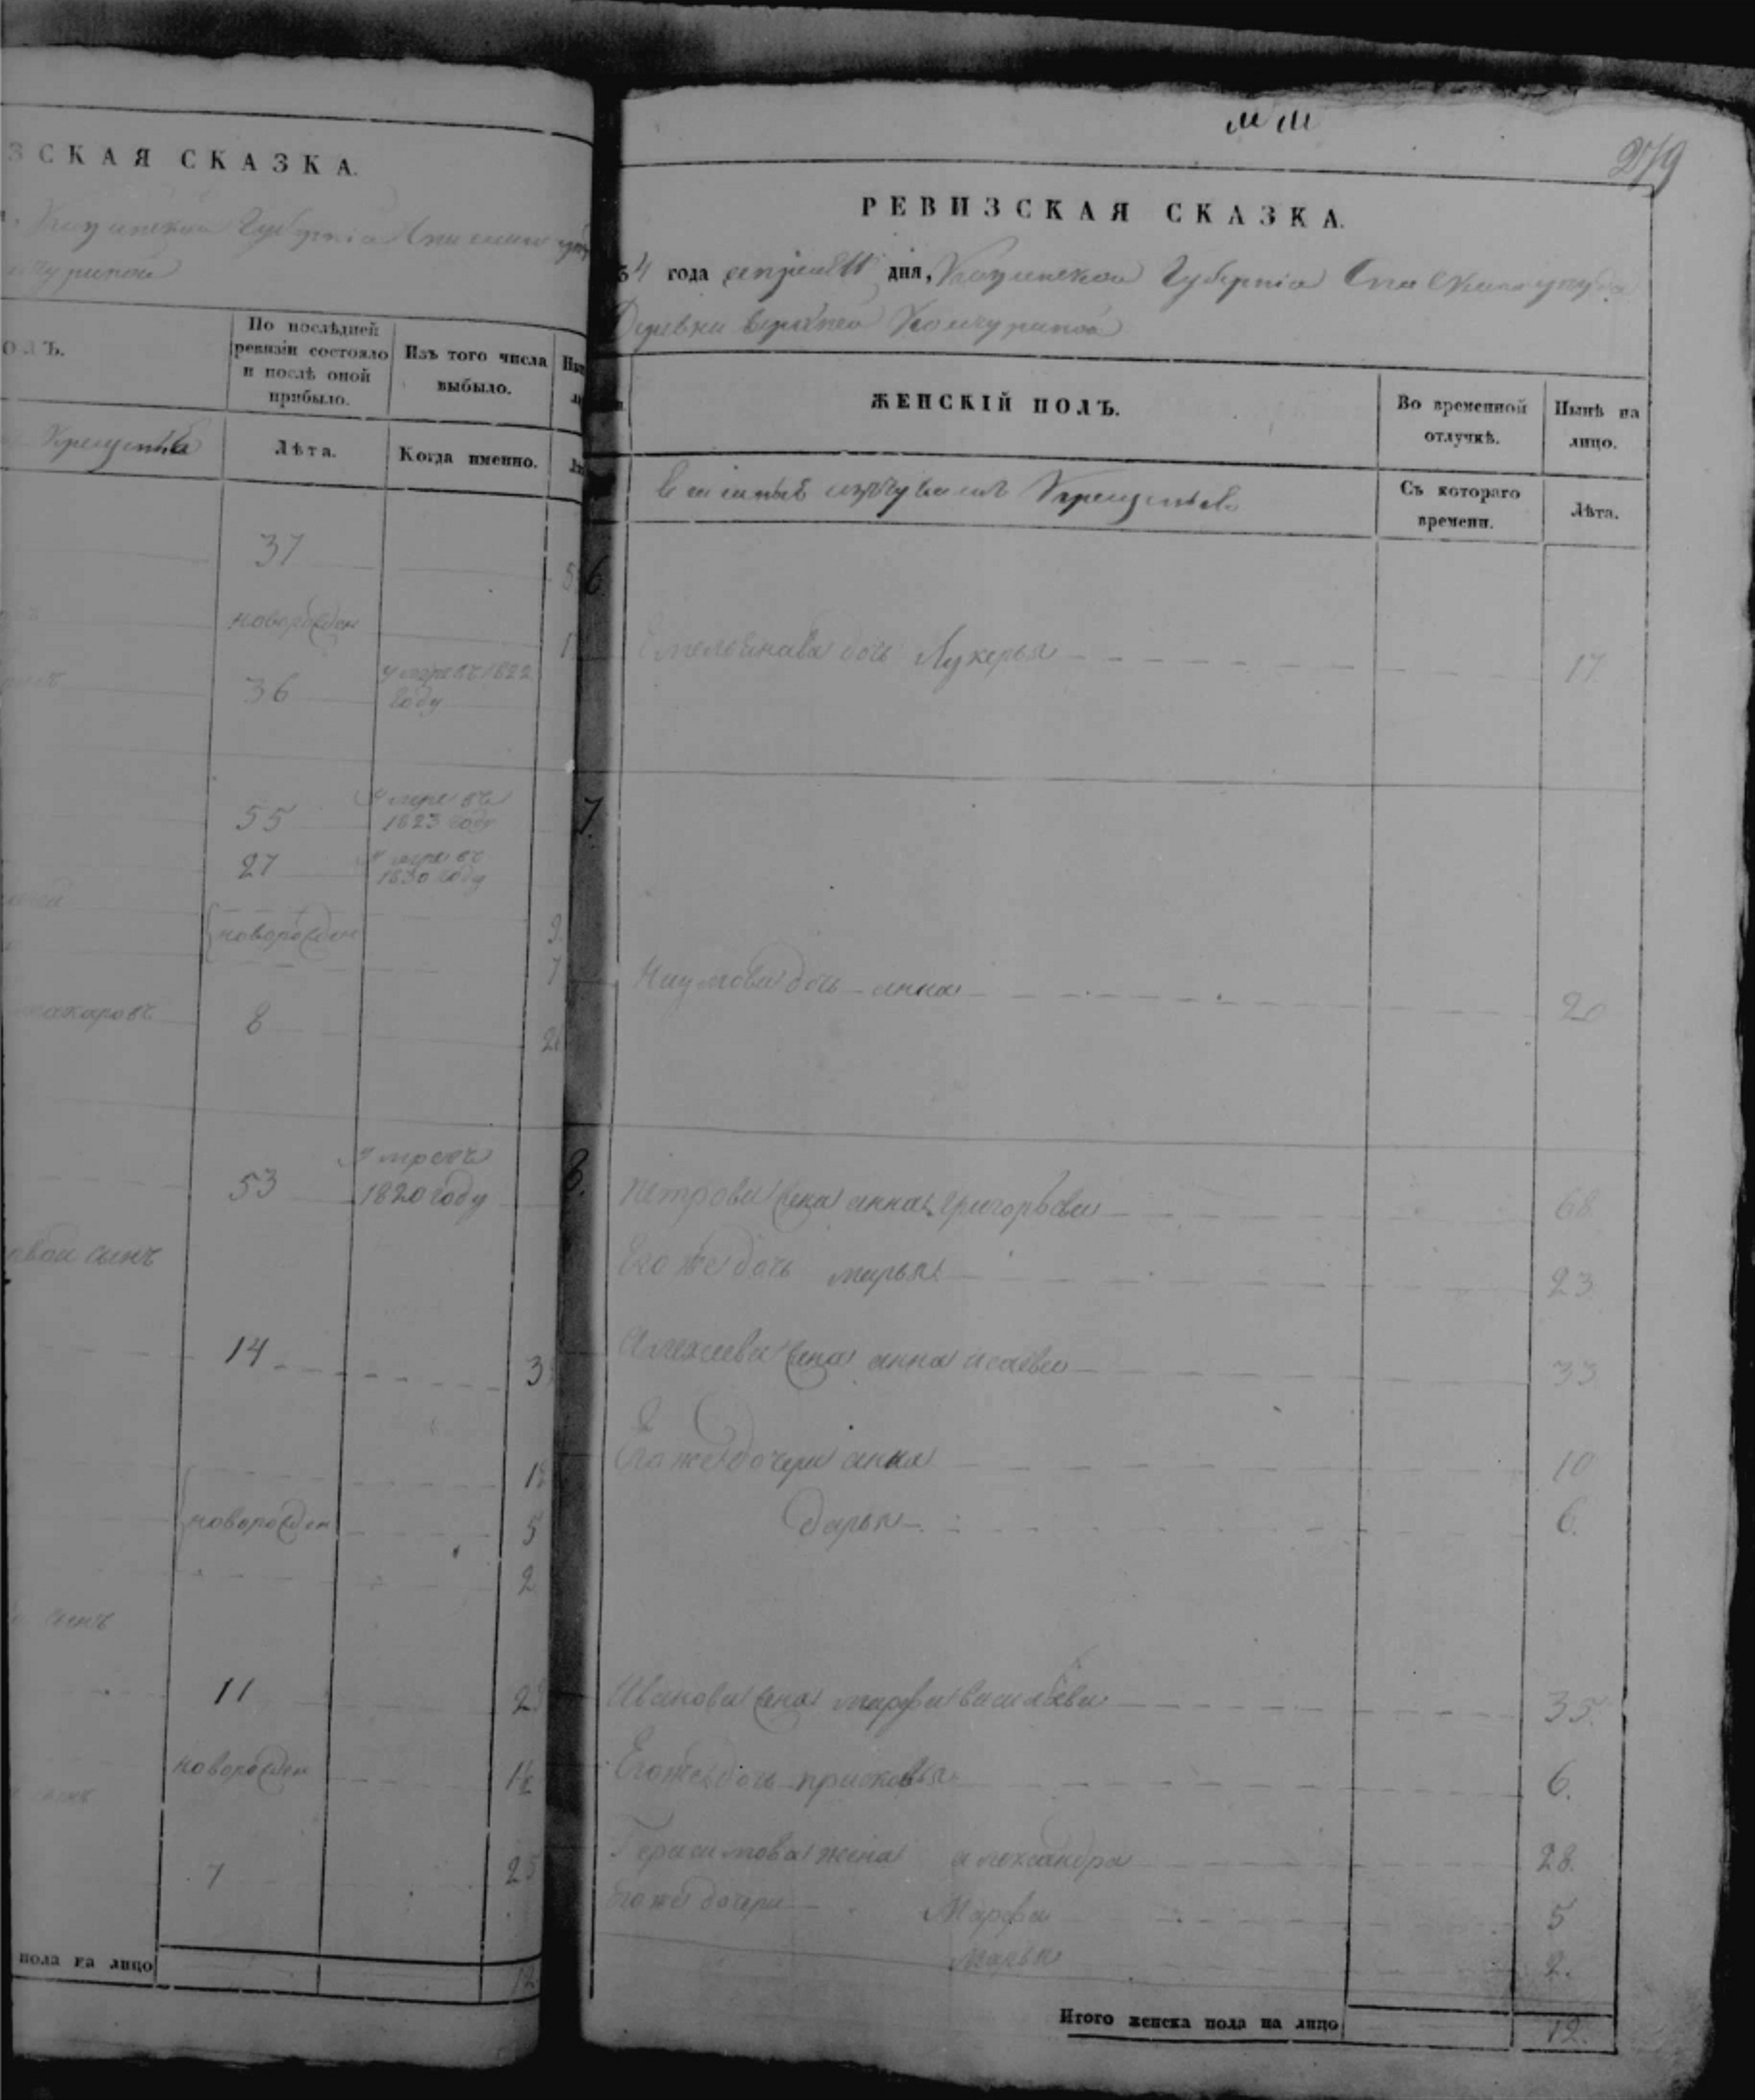 ЗСКАЯ СКАЗКА.
Губерніи
ОЛЪ.
По послѣдней ревизіи состояло и послѣ оной прибыло.
Изъ того числа выбыло.
Лѣта.
Когда именно.
37
новорожден
36
умре въ 1822
году
55
умре въ
1823 году
27
умре въ
1830 году
новорожден
9
7
макаровъ
8
53
умре въ
1820 году
сынъ
14
3
новорожден
5
2
сынъ
11
новорожден
7
25
пола на лицо
279
РЕВИЗСКАЯ СКАЗКА.
34 года апреля 11 дня, Казанской Губерніи Спаскаго уезда
Деревни верхней Кончуриной
ЖЕНСКІЙ ПОЛЪ.
Во временной отлучкѣ.
Нынѣ на лицо.
изъ чувашъ
Съ котораго времени.
Лѣта.
6.
Емельянова дочь Лукерья 17
7.
Наумова дочь анна 20
8.
Петрова жена анна григорьева 68
Его же дочь марья 23
Алексеева жена анна исаева 33
Его же дочери анна 10
дарья 6.
Иванова жена марфа васильева 35.
Его же дочь прасковья 6.
Герасимова жена александра 28.
Его же дочери Марфа 5
Марья 2.
Итого женска пола на лицо 12.